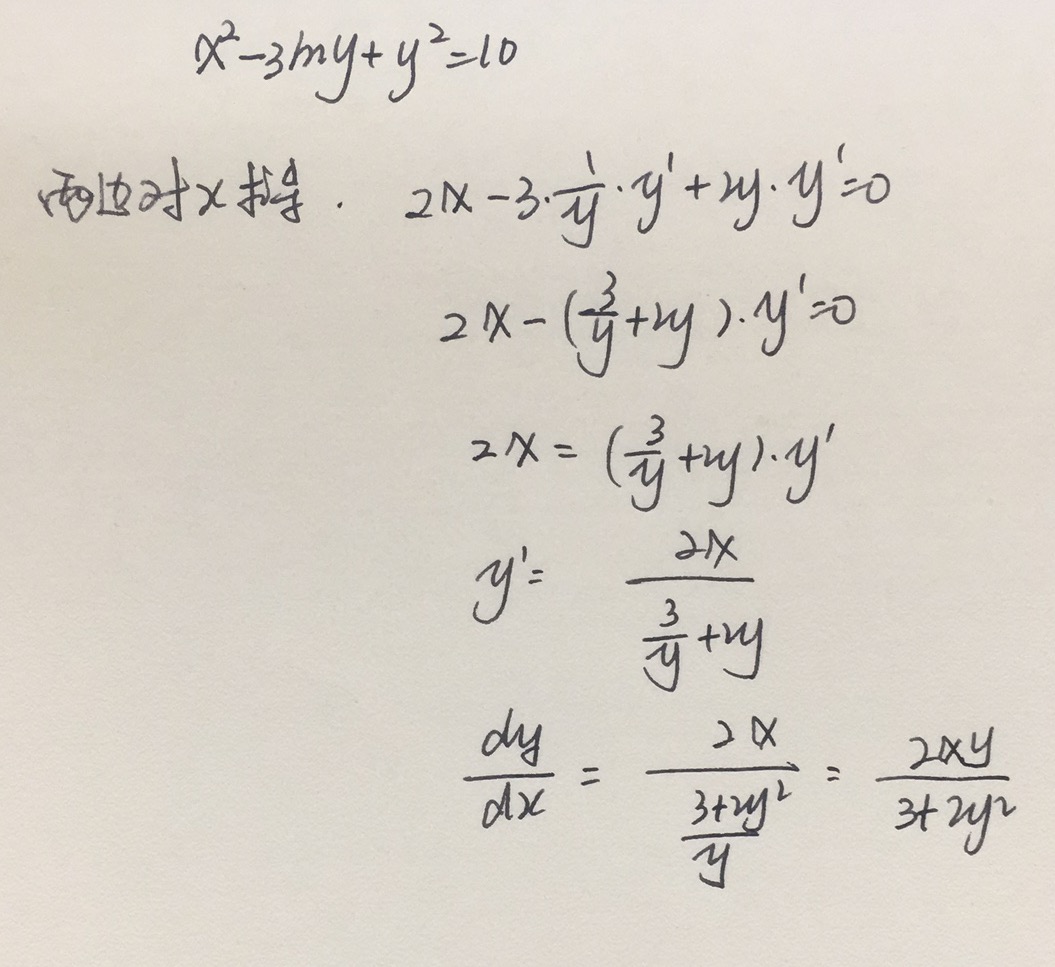 x²-3lny+y²=10
两边对x求导. 2x-3·\frac{1}{y}·y'+2y·y'=0
2x-(\frac{3}{y}+2y)·y'=0
2x=(\frac{3}{y}+2y)·y'
y'=\frac{2x}{\frac{3}{y}+2y}
\frac{dy}{dx}=\frac{2x}{\frac{3+2y²}{y}}=\frac{2xy}{3+2y²}